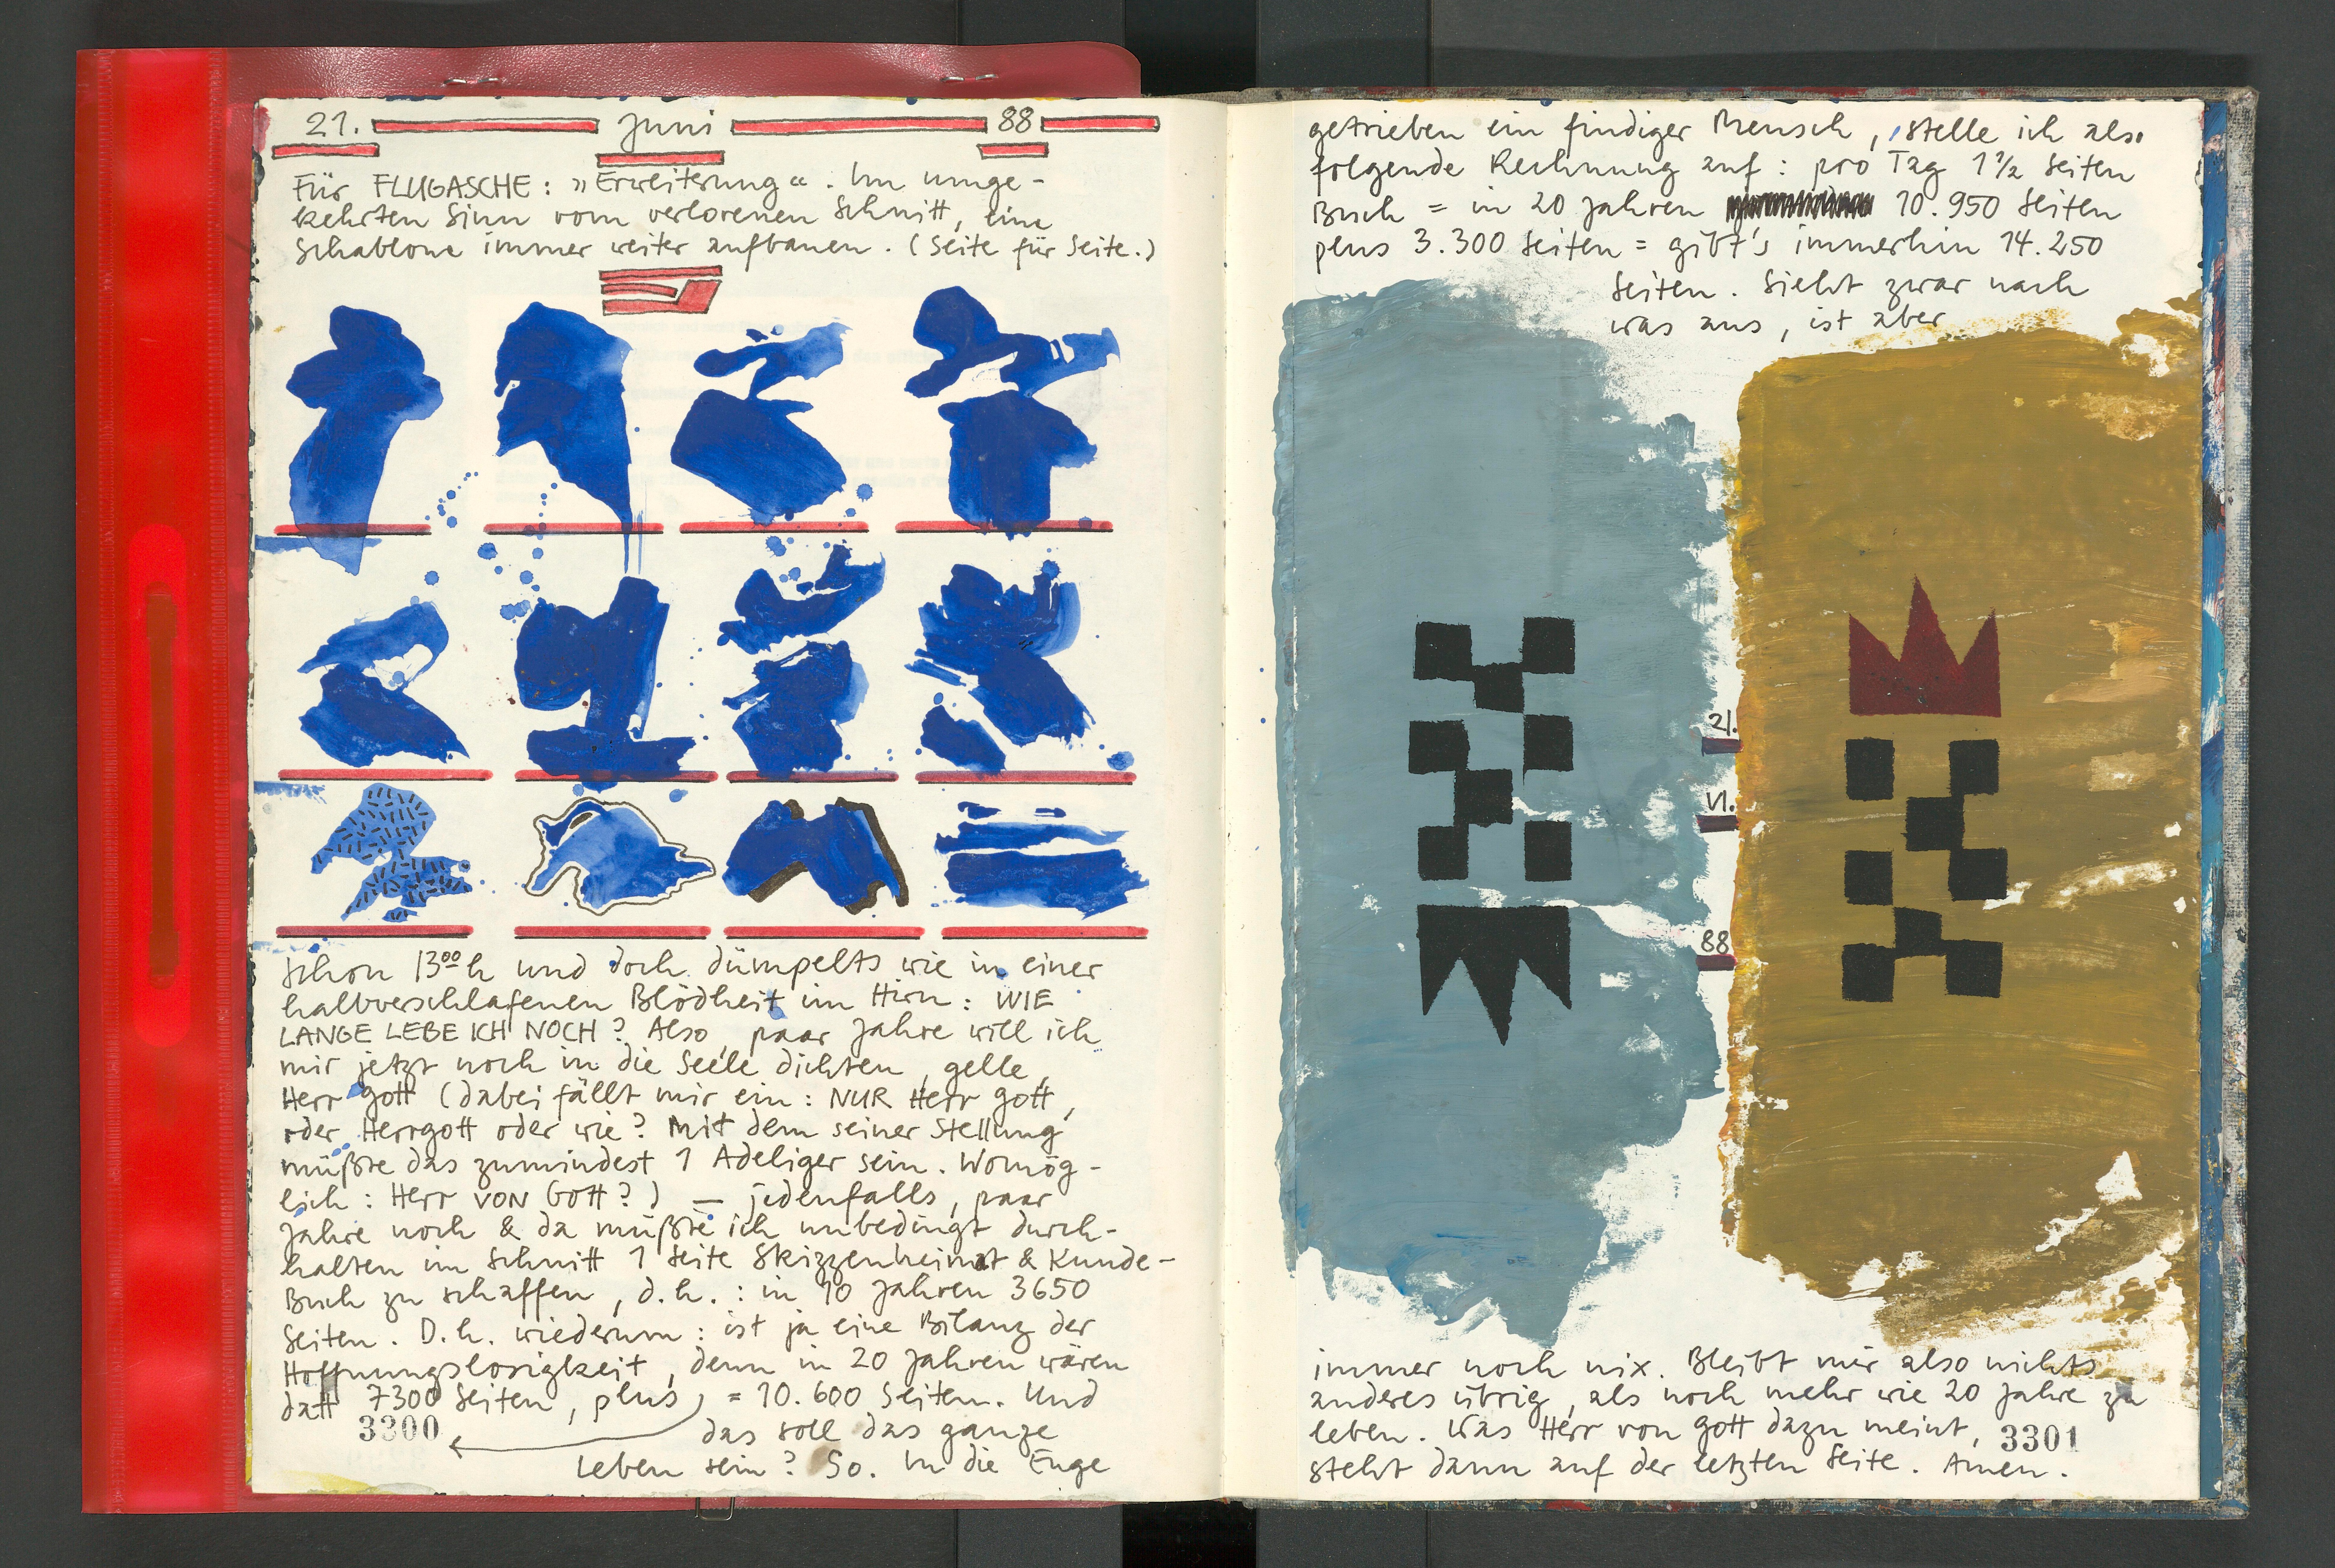 21. Juni 88
Für FLUGASCHE: „Erweiterung“. Im umge-
kehrten Sinn vom verlorenen Schnitt, eine
Schablone immer weiter aufbauen. (Seite für Seite.)
Schon 13⁰⁰h und doch dümpelts wie in einer
halbverschlafenen Blödheit im Hirn: WIE
LANGE LEBE ICH NOCH? Also, paar Jahre will ich
mir jetzt noch in die Seele dichten, gelle,
Herr Gott (dabei fällt mir ein: NUR Herr Gott,
oder Herrgott oder wie? Mit dem seiner Stellung
müßte das zumindest 1 Adeliger sein. Womög-
lich: Herr VON GOTT?) — jedenfalls, paar
Jahre noch & da müßte ich unbedingt durch-
halten im Schnitt 1 Seite Skizzenheimat & Kunde-
Buch zu schaffen, d.h.: in 10 Jahren 3650
Seiten. D.h. wiederum: ist ja eine Bilanz der
Hoffnungslosigkeit, denn in 20 Jahren wären
datt 7300 Seiten, plus = 10.600 Seiten. Und
3300 das soll das ganze
Leben sein? So. In die Enge
getrieben ein findiger Mensch, stelle ich also
folgende Rechnung auf: pro Tag 1 ½ Seiten
Buch = in 20 Jahren 10.950 Seiten
plus 3.300 Seiten = gibt's immerhin 14.250
Seiten. Sieht zwar nach
was aus, ist aber
21.
VI.
88
immer noch nix. Bleibt mir also nichts
anderes übrig, als noch mehr wie 20 Jahre zu
leben. Was Herr von Gott dazu meint,
steht dann auf der letzten Seite. Amen.
3301